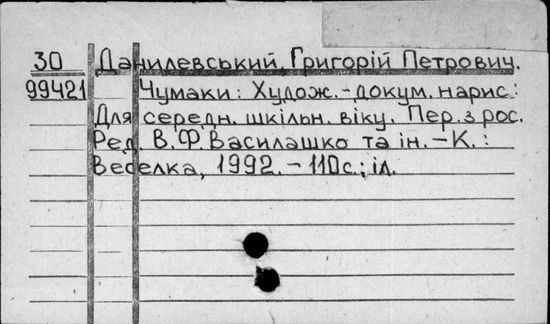 30 Данилевський, Григорій Петрович.
99421 Чумаки: Худож.-докум. нарис:
Для середн. шкільн. віку. Пер. з рос.
Ред. В.Ф.Василашко та ін. - К.:
Веселка, 1992. - 110с.; іл.